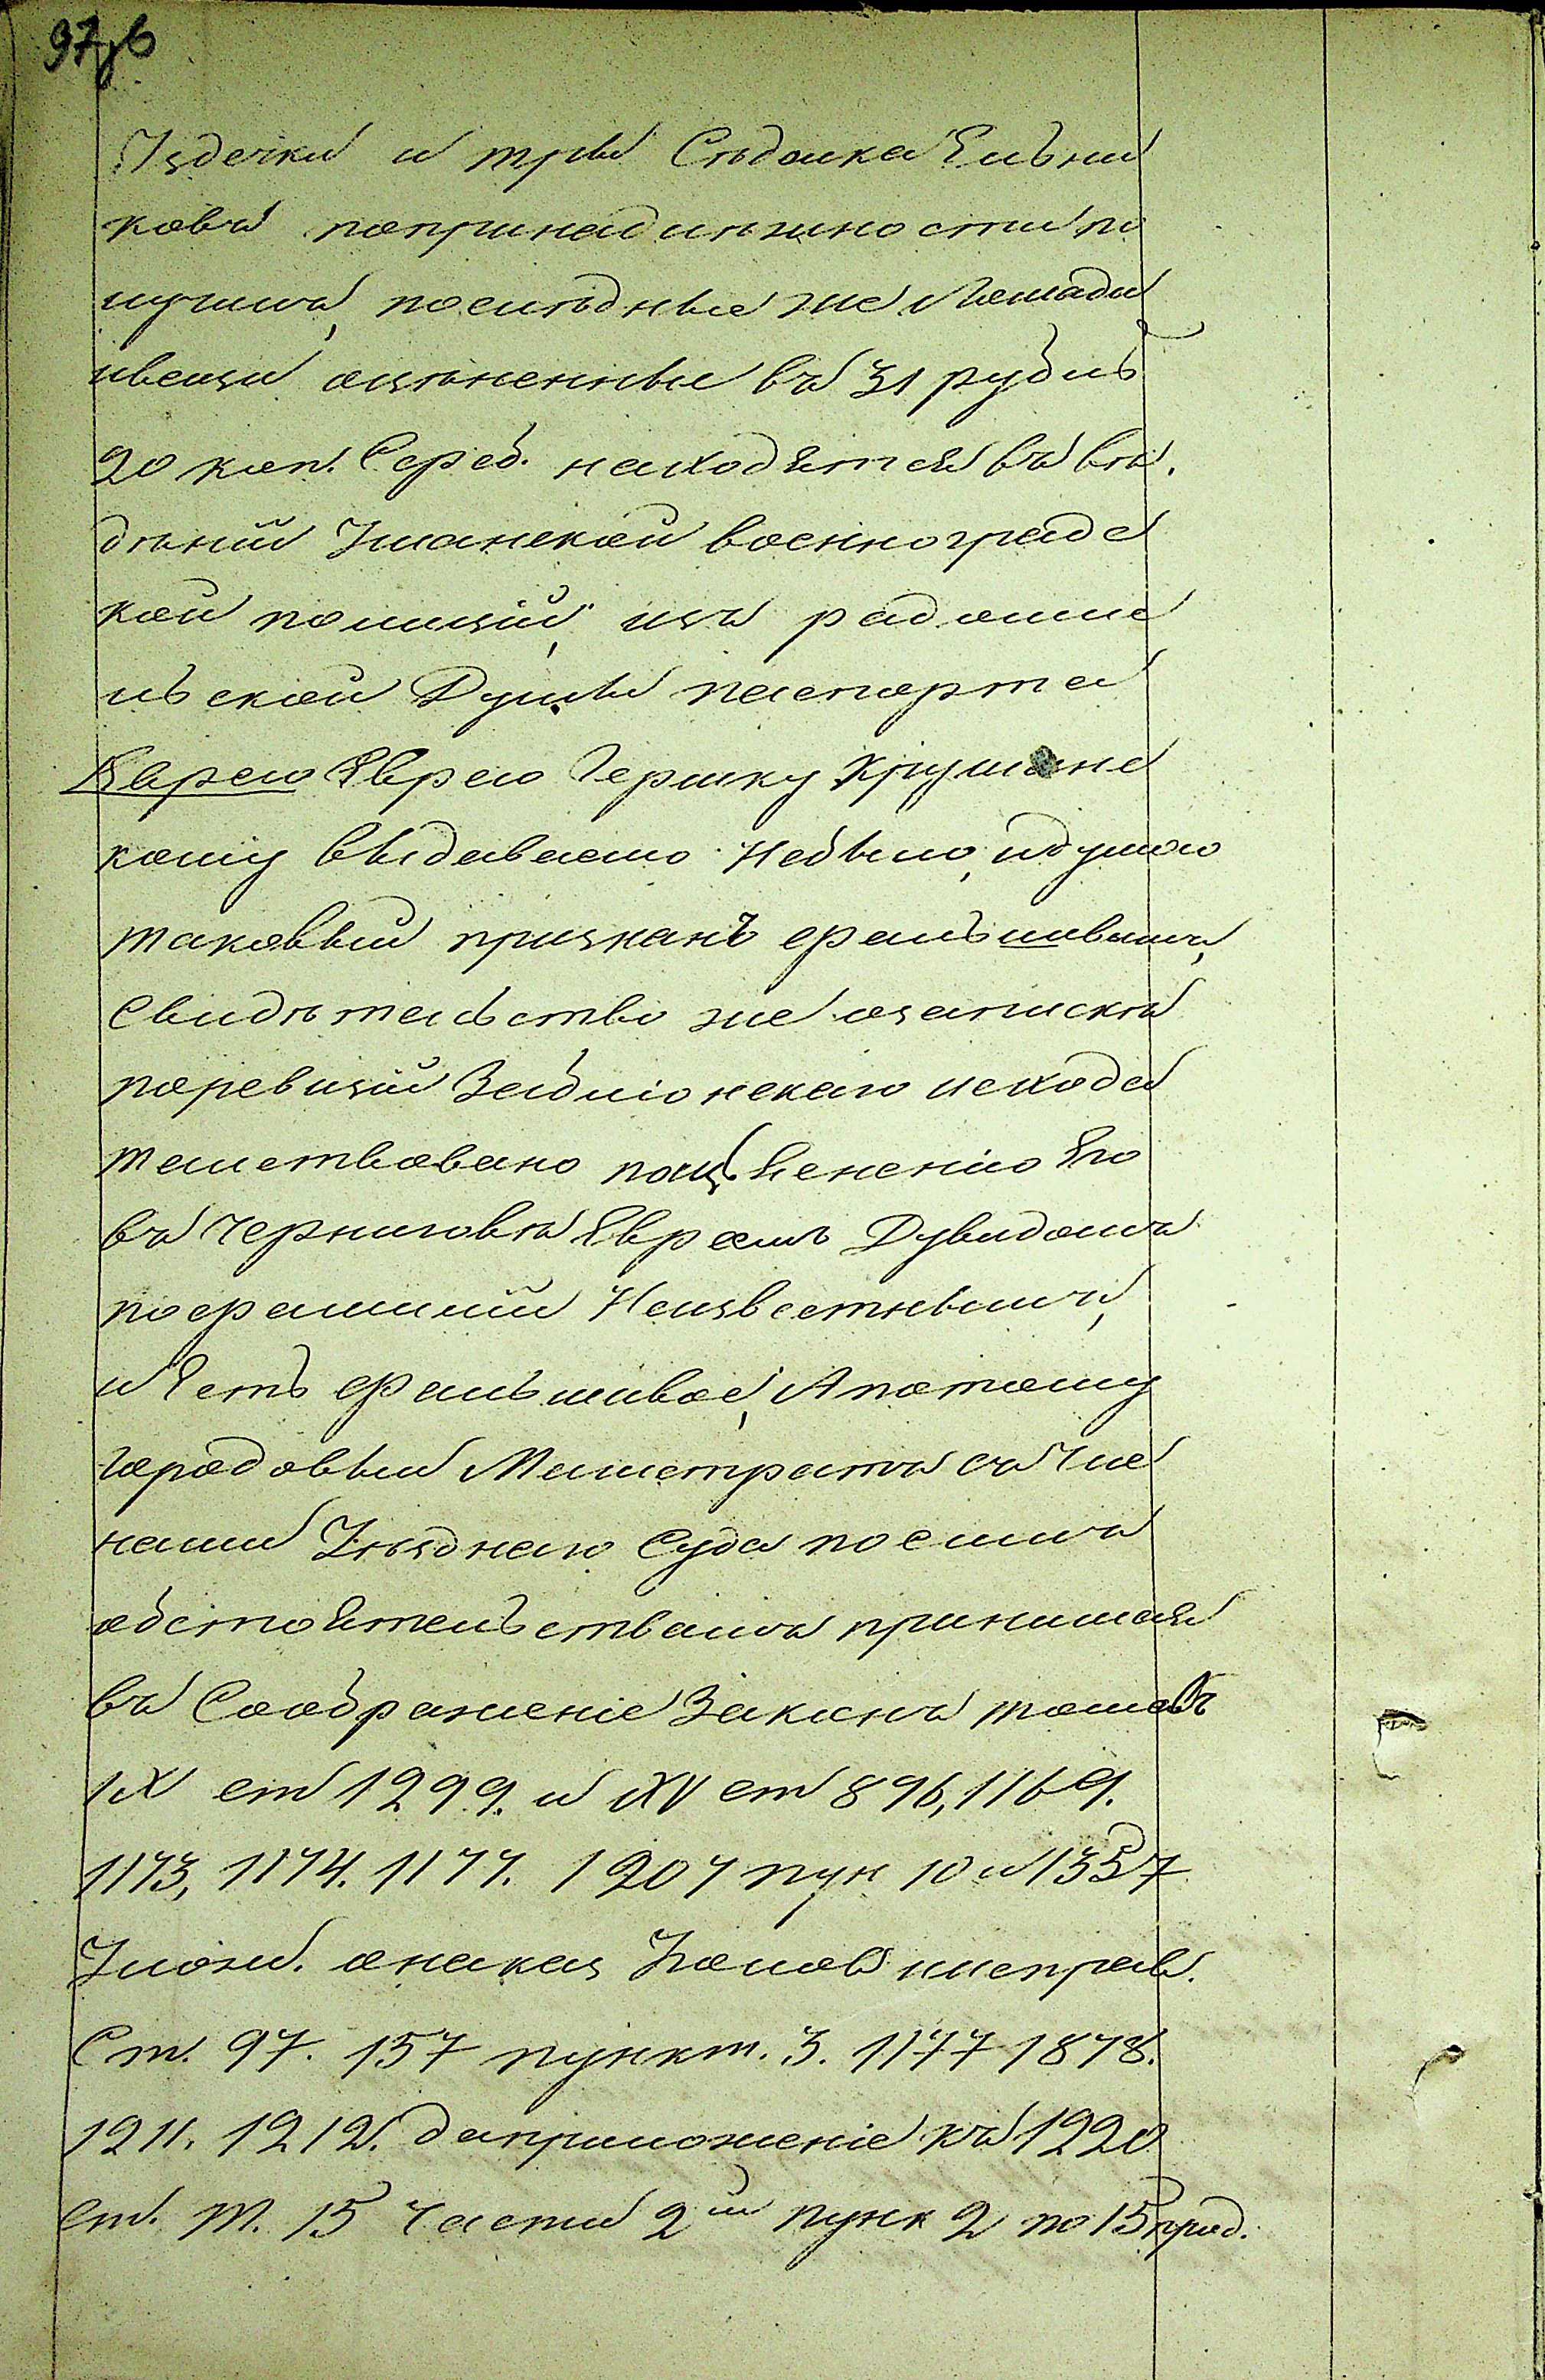 97об
Уздечки и три Сѣдалка Ельни
ковъ попринадлѣжности по
лучилъ, послѣдные же лошади
ивещи оцѣненные въ 31 рубль
20 коп. Сереб. находятся въ вѣ.
дѣніи Уманской военноградс
кой полиціи, изъ радомис
льской Думы паспорта
Еврею Еврею Гершку Хрущанс
кому выдаваемо небыло, идумою
таковый признанъ фальшивымъ,
свидѣтельство же озапискѣ
поревизіи Заблионскаго исхода
тайствовано по изъясненію Его
въ Черниговѣ Евреемъ Дувидомъ
пофамиліи Неизвестнымъ,
и Есть фальшивое, Апотому
городовый Магистратъ съ Чле
нами Уѣзднаго Суда по симъ
обстоятельствамъ принимая
въ Соображеніе Законъ томовъ
IX ст 1299. и XV ст 896, 1169.
1173, 1174. 1177. 1207 пун 10 и 1357
Улож. онаказ Уголов иисправ.
Ст. 97. 157 пункт. 3. 1177 1878.
1211. 1212. даприложеніе къ 1220
ст. Т. 15 Части 2й пунк 2 по 15 прод.